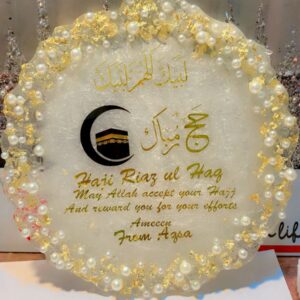 لبيك اللهم لبيك
حج مبارك
Haji Riaz ul Haq
May Allah accept your Hajj
And reward you for your efforts
Ameeen
From Aqsa